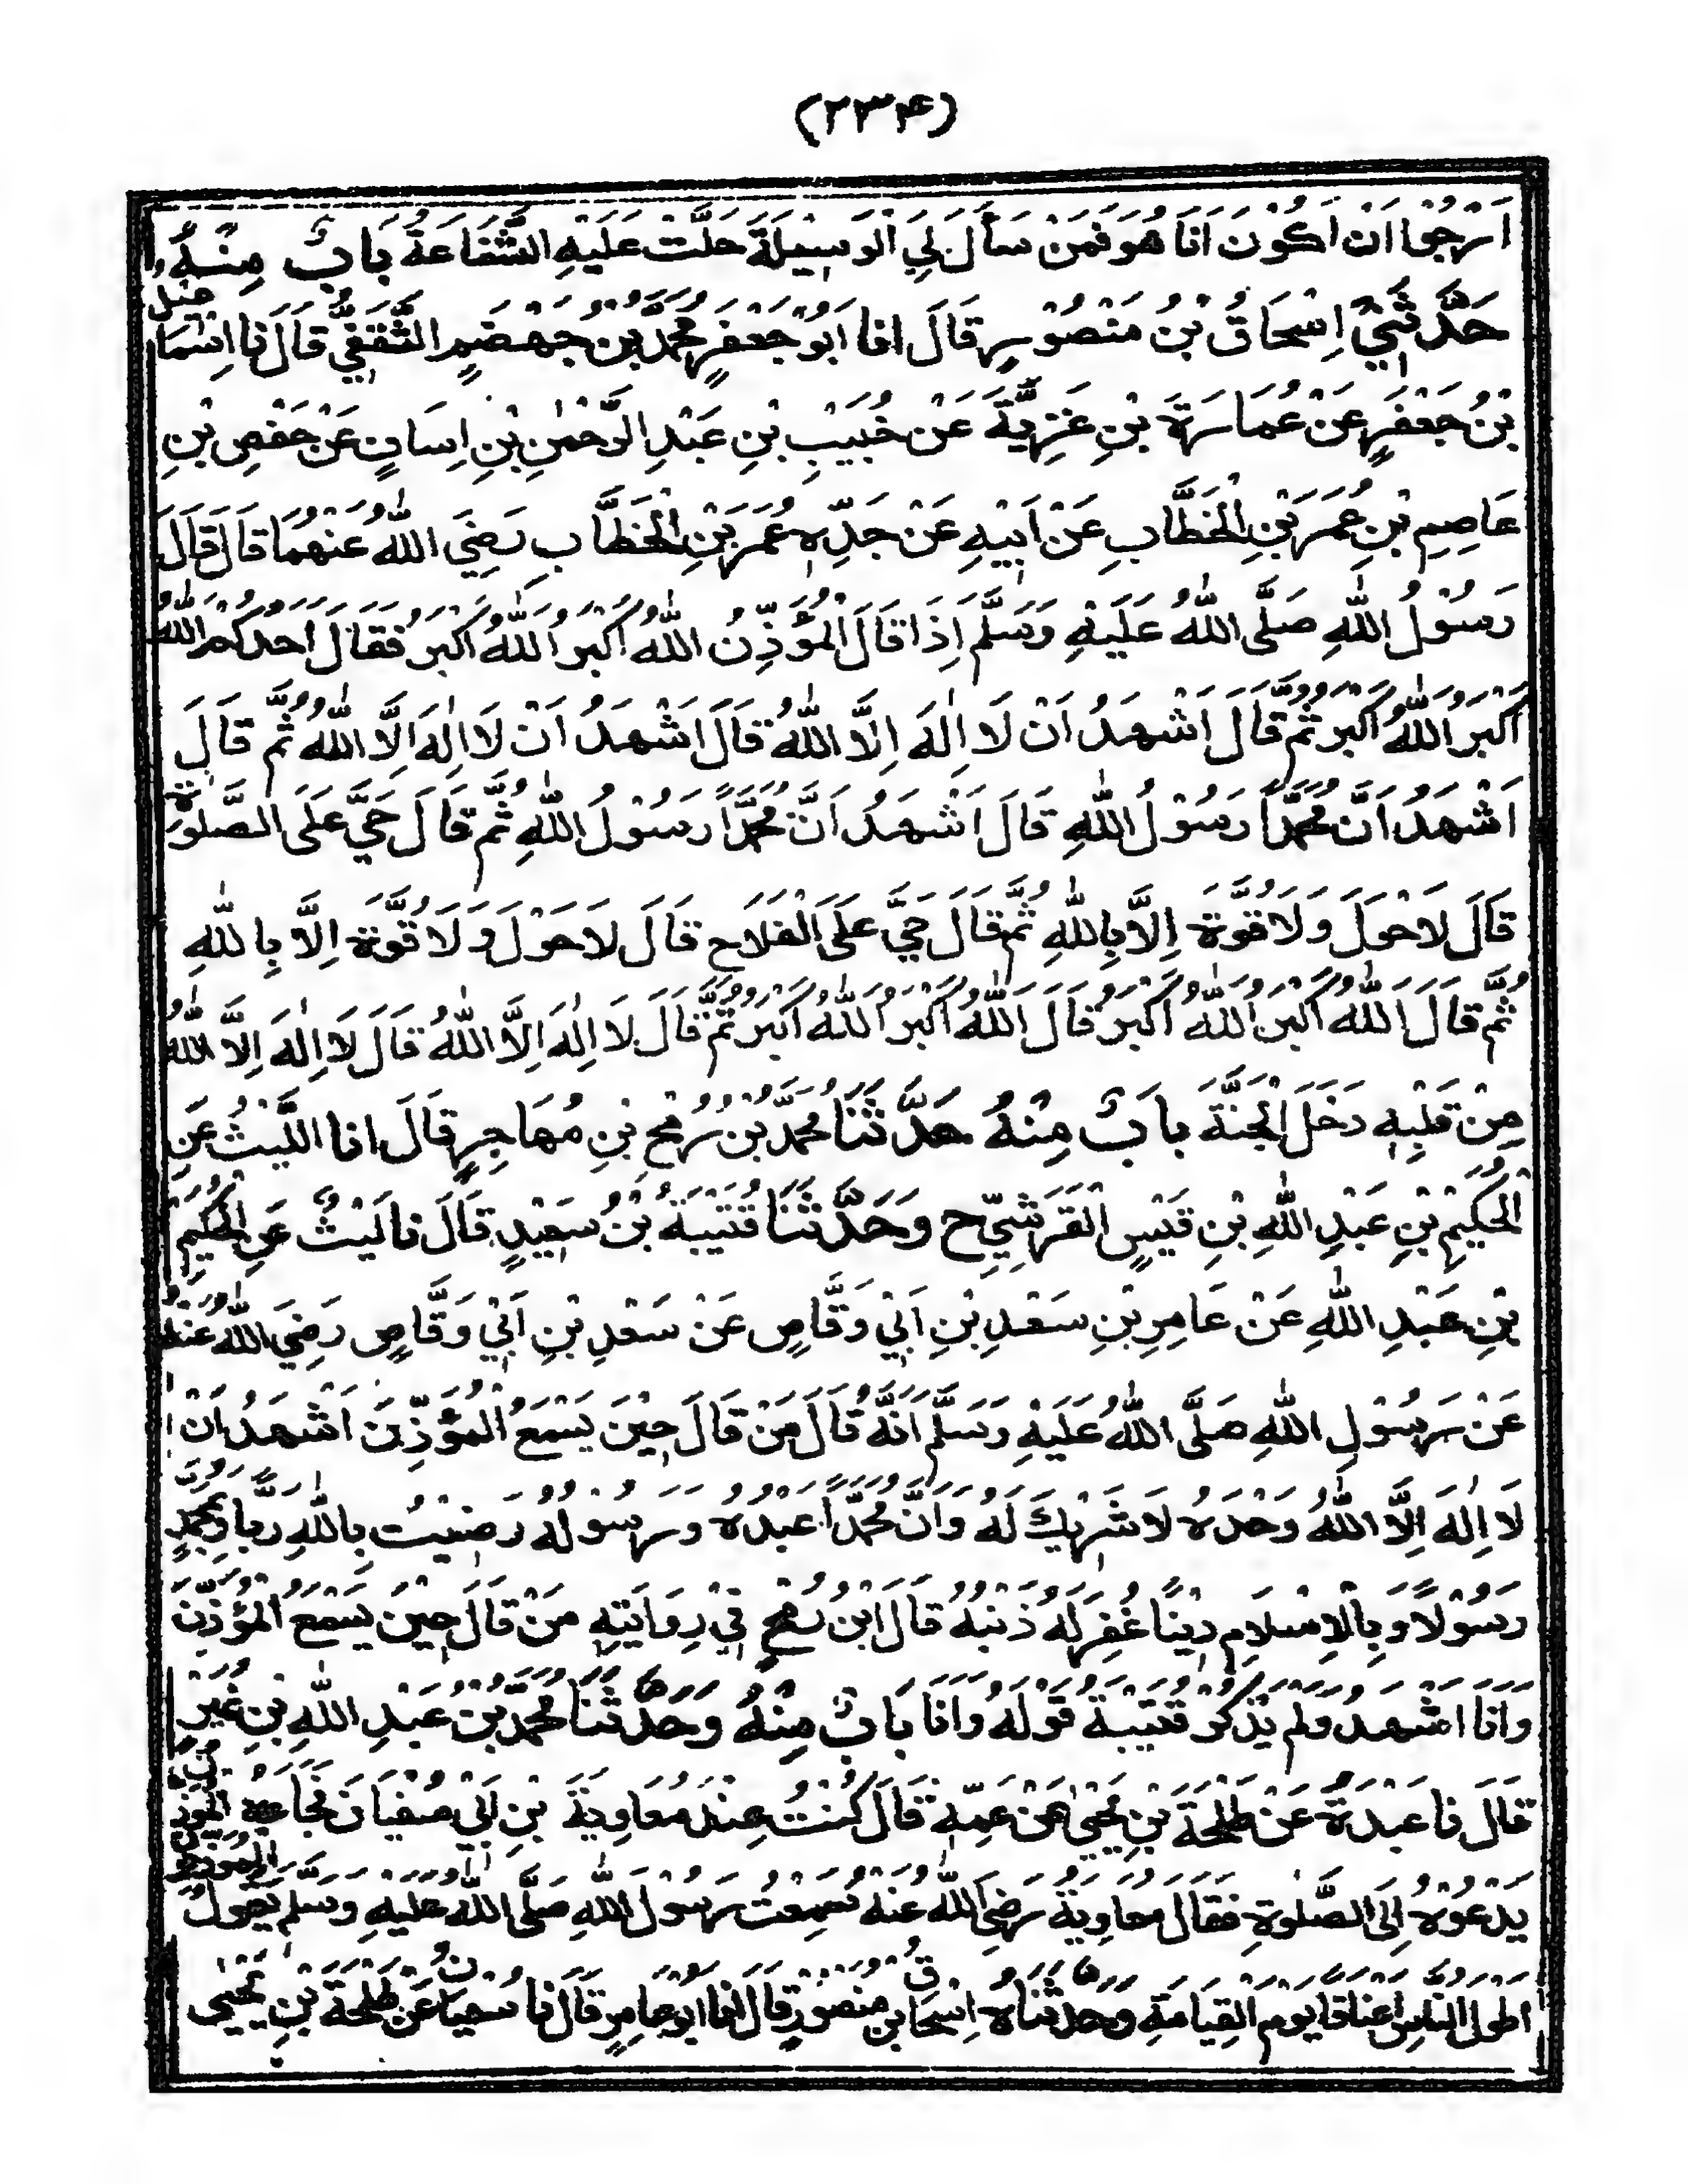 (۲۳۴)
اَرْجُوْا اَنْ اَكُوْنَ اَنَا هُوَ فَمَنْ سَاَلَ لِيَ الْوَسِيْلَةَ حَلَّتْ عَلَيْهِ الشَّفَاعَةُ بَابٌ مِنْهُ
حَدَّثَنِيْ اِسْحَاقُ بْنُ مَنْصُوْرٍ قَالَ انا اَبُوْ جَعْفَرٍ مُحَمَّدُ بْنُ جَهْضَمٍ الثَّقَفِيُّ قَالَ نَا اِسْمَاعِيْلُ
بْنُ جَعْفَرٍ عَنْ عُمَارَةَ بْنِ غَزِيَّةَ عَنْ خُبَيْبِ بْنِ عَبْدِ الرَّحْمٰنِ بْنِ اِسَافٍ عَنْ حَفْصِ بْنِ
عَاصِمِ بْنِ عُمَرَ بْنِ الْخَطَّابِ عَنْ اَبِيْهِ عَنْ جَدِّهٖ عُمَرَ بْنِ الْخَطَّابِ رَضِيَ اللّٰهُ عَنْهُمَا قَالَ قَالَ
رَسُوْلُ اللّٰهِ صَلَّى اللّٰهُ عَلَيْهِ وَسَلَّمَ اِذَا قَالَ الْمُؤَذِّنُ اَللّٰهُ اَكْبَرُ اَللّٰهُ اَكْبَرُ فَقَالَ اَحَدُكُمْ اَللّٰهُ
اَكْبَرُ اَللّٰهُ اَكْبَرُ ثُمَّ قَالَ اَشْهَدُ اَنْ لَا اِلٰهَ اِلَّا اللّٰهُ قَالَ اَشْهَدُ اَنْ لَا اِلٰهَ اِلَّا اللّٰهُ ثُمَّ قَالَ
اَشْهَدُ اَنَّ مُحَمَّدًا رَسُوْلُ اللّٰهِ قَالَ اَشْهَدُ اَنَّ مُحَمَّدًا رَسُوْلُ اللّٰهِ ثُمَّ قَالَ حَيَّ عَلَى الصَّلٰوةِ
قَالَ لَا حَوْلَ وَلَا قُوَّةَ اِلَّا بِاللّٰهِ ثُمَّ قَالَ حَيَّ عَلَى الْفَلَاحِ قَالَ لَا حَوْلَ وَلَا قُوَّةَ اِلَّا بِاللّٰهِ
ثُمَّ قَالَ اَللّٰهُ اَكْبَرُ اَللّٰهُ اَكْبَرُ قَالَ اَللّٰهُ اَكْبَرُ اَللّٰهُ اَكْبَرُ ثُمَّ قَالَ لَا اِلٰهَ اِلَّا اللّٰهُ قَالَ لَا اِلٰهَ اِلَّا اللّٰهُ
مِنْ قَلْبِهٖ دَخَلَ الْجَنَّةَ بَابٌ مِنْهُ حَدَّثَنَا مُحَمَّدُ بْنُ رُمْحِ بْنِ مُهَاجِرٍ قَالَ انا اللَّيْثُ عَنِ
الْحُكَيْمِ بْنِ عَبْدِ اللّٰهِ بْنِ قَيْسٍ الْقُرَشِيِّ ح وَحَدَّثَنَا قُتَيْبَةُ بْنُ سَعِيْدٍ قَالَ نَا لَيْثٌ عَنِ الْحُكَيْمِ
بْنِ عَبْدِ اللّٰهِ عَنْ عَامِرِ بْنِ سَعْدِ بْنِ اَبِيْ وَقَّاصٍ عَنْ سَعْدِ بْنِ اَبِيْ وَقَّاصٍ رَضِيَ اللّٰهُ عَنْهُ
عَنْ رَسُوْلِ اللّٰهِ صَلَّى اللّٰهُ عَلَيْهِ وَسَلَّمَ اَنَّهُ قَالَ مَنْ قَالَ حِيْنَ يَسْمَعُ الْمُؤَذِّنَ اَشْهَدُ اَنْ
لَا اِلٰهَ اِلَّا اللّٰهُ وَحْدَهُ لَا شَرِيْكَ لَهُ وَاَنَّ مُحَمَّدًا عَبْدُهُ وَرَسُوْلُهُ رَضِيْتُ بِاللّٰهِ رَبًّا وَبِمُحَمَّدٍ
رَسُوْلًا وَبِالْاِسْلَامِ دِيْنًا غُفِرَ لَهُ ذَنْبُهُ قَالَ ابْنُ رُمْحٍ فِيْ رِوَايَتِهٖ مَنْ قَالَ حِيْنَ يَسْمَعُ الْمُؤَذِّنَ
وَاَنَا اَشْهَدُ وَلَمْ يَذْكُرْ قُتَيْبَةُ قَوْلَهُ وَاَنَا بَابٌ مِنْهُ وَحَدَّثَنَا مُحَمَّدُ بْنُ عَبْدِ اللّٰهِ بْنِ نُمَيْرٍ
قَالَ نا عَبْدَةُ عَنْ طَلْحَةَ بْنِ يَحْيٰى عَنْ عَمِّهٖ قَالَ كُنْتُ عِنْدَ مُعَاوِيَةَ بْنِ اَبِيْ سُفْيَانَ فَجَاءَهُ الْمُؤَذِّنُ
يَدْعُوْهُ اِلَى الصَّلٰوةِ فَقَالَ مُعَاوِيَةُ رَضِيَ اللّٰهُ عَنْهُ سَمِعْتُ رَسُوْلَ اللّٰهِ صَلَّى اللّٰهُ عَلَيْهِ وَسَلَّمَ يَقُوْلُ الْمُؤَذِّنُوْنَ
اَطْوَلُ النَّاسِ اَعْنَاقًا يَوْمَ الْقِيَامَةِ وَحَدَّثَنَاهُ اِسْحَاقُ بْنُ مَنْصُوْرٍ قَالَ انا اَبُوْ عَامِرٍ قَالَ نَا سُفْيَانُ عَنْ طَلْحَةَ بْنِ يَحْيٰى